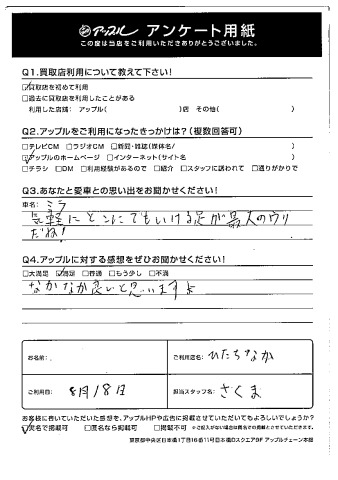 アップル アンケート用紙
この度は当店をご利用いただきありがとうございました。
Q1.買取店利用について教えて下さい!
☑買取店を初めて利用
□過去に買取店を利用したことがある
利用した店舗: アップル( )店 その他( )
Q2.アップルをご利用になったきっかけは?(複数回答可)
□テレビCM □ラジオCM □新聞・雑誌(媒体名/ )
☑アップルのホームページ □インターネット(サイト名 )
□チラシ □DM □利用経験があるので □紹介 □スタッフに誘われて □通りがかりで
Q3.あなたと愛車との思い出をお聞かせください!
車名: ミラ
気軽にどこにでもいける足が最大のウリ
だね!
Q4.アップルに対する感想をぜひお聞かせください!
□大満足 ☑満足 □普通 □もう少し □不満
なかなか良いと思いますよ
お名前:
ご利用店名: ひたちなか
ご利用日: 8月18日
担当スタッフ名: さくま
お客様に書いていただいた感想を、アップルHPや広告に掲載させていただいてもよろしいでしょうか?
☑匿名で掲載可 □匿名なら掲載可 □掲載不可 ※ご記入がない場合は匿名での掲載とさせていただきます
東京都中央区日本橋1丁目16番11号日本橋Dスクエア9F アップルチェーン本部